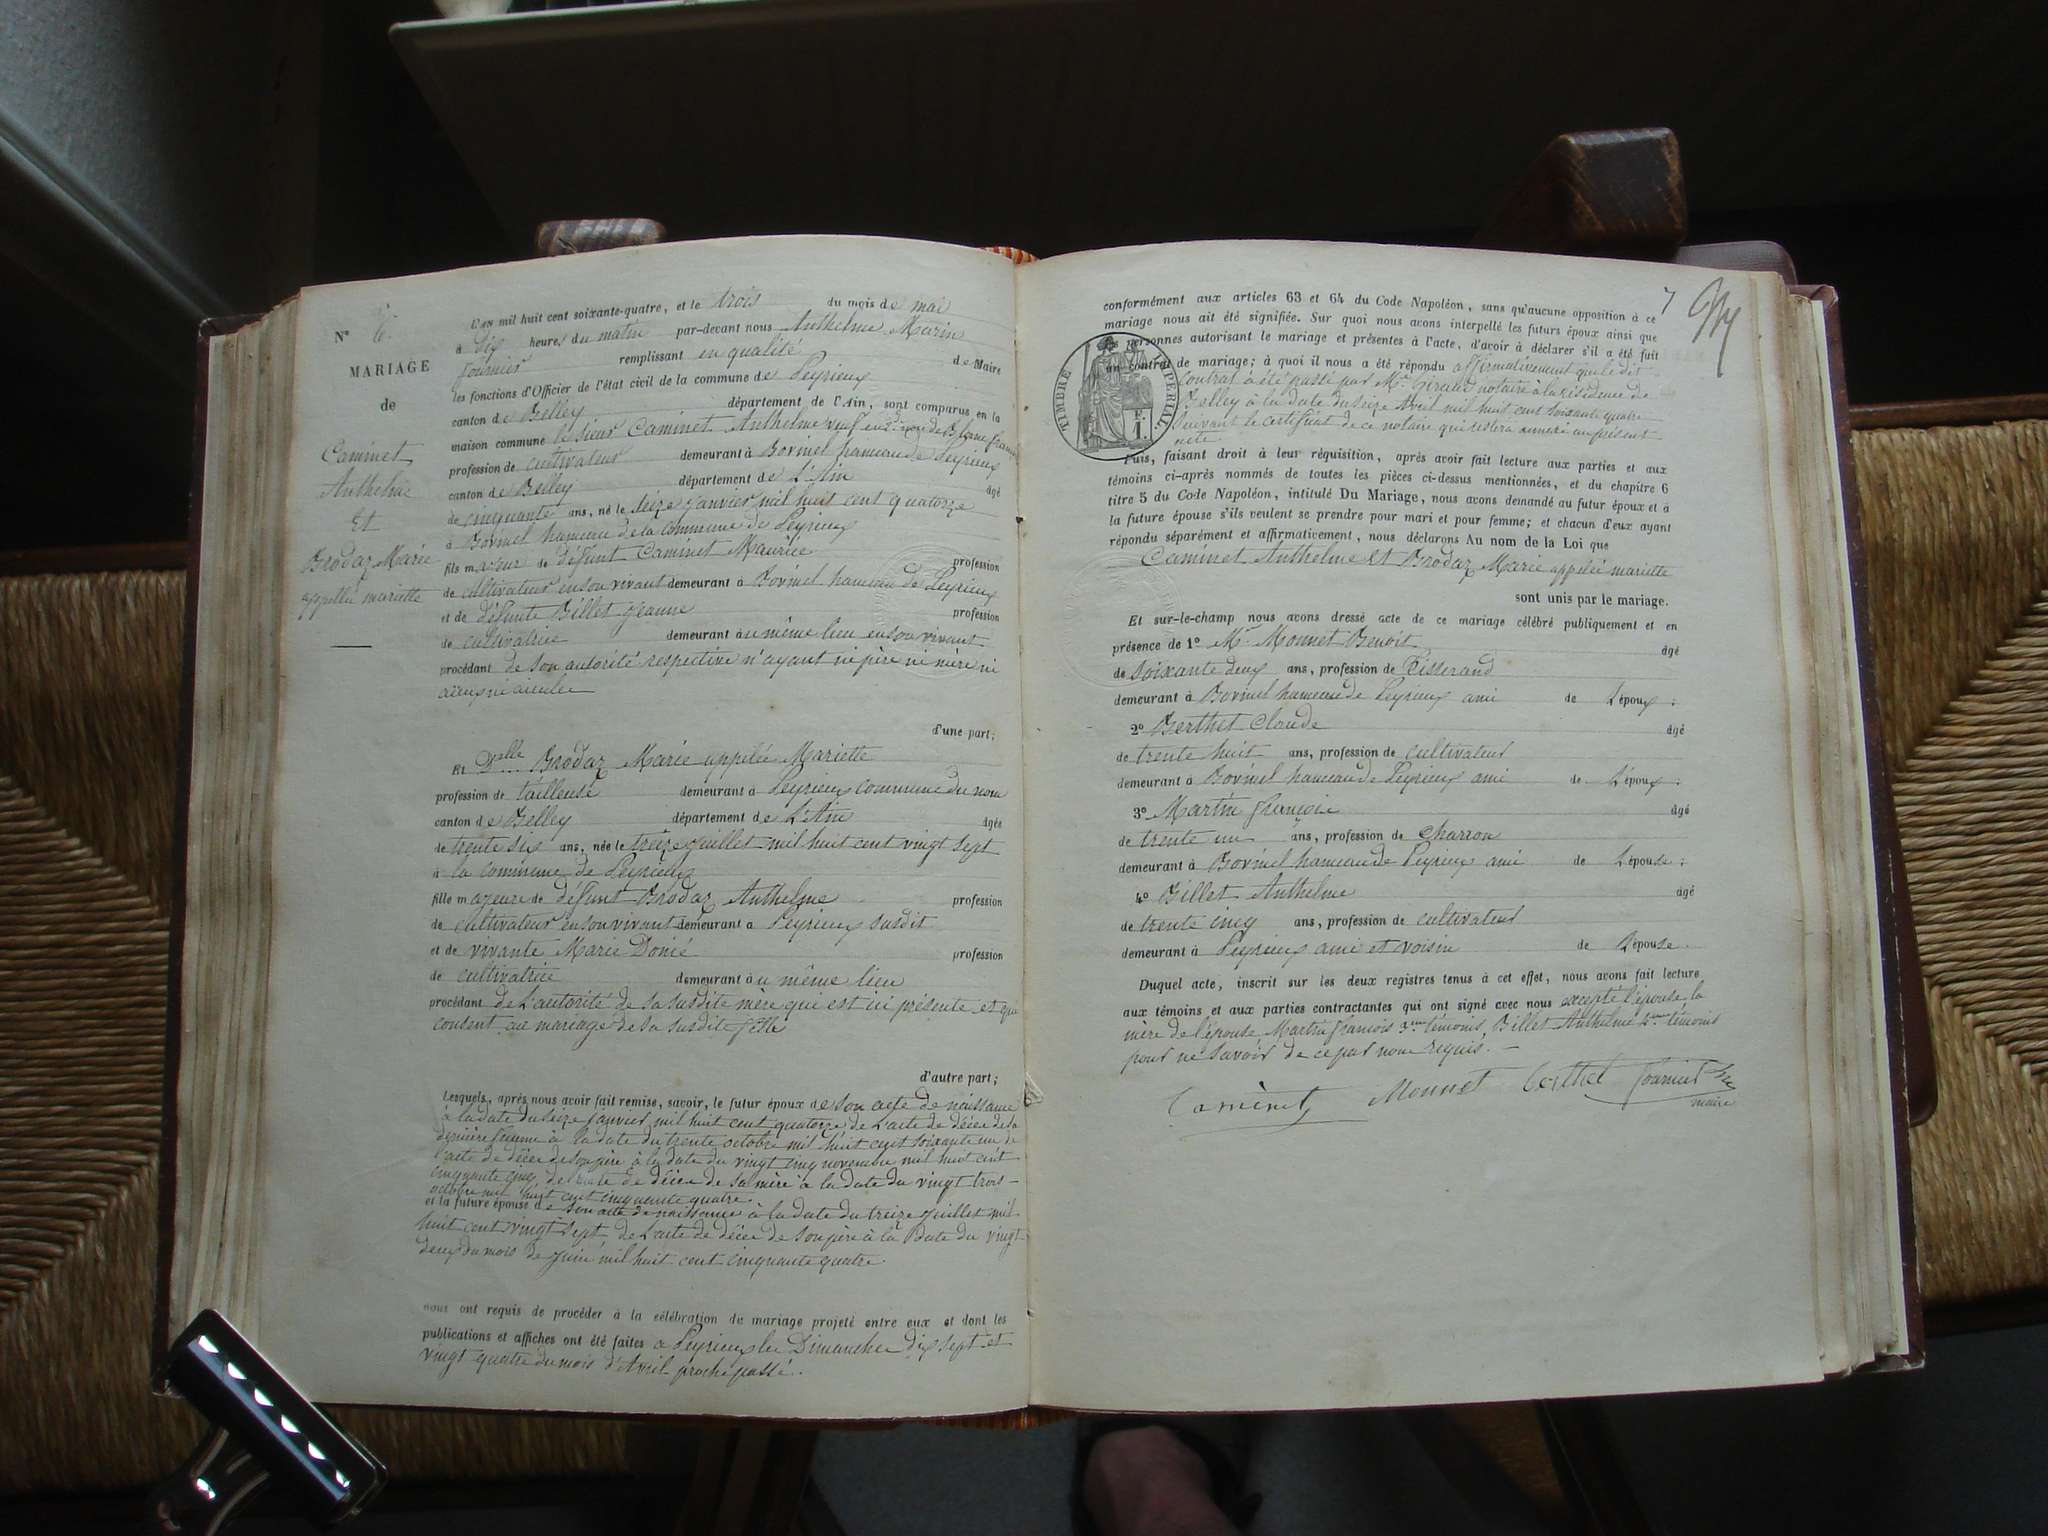 N° 6.
MARIAGE
de
Caminet
Anthelme
Et
Brodaz Marie
appellée mariette
L'AN mil huit cent soixante-quatre, et le trois du mois de mai
à dix heures du matin par-devant nous Anthelme Marin
fournier remplissant en qualité de Maire
les fonctions d'Officier de l'état civil de la commune de Peyrieux
canton de Belley département de l'Ain, sont comparus en la
maison commune le sieur Caminet Anthelme veuf en
profession de cultivateur demeurant à Bovinel hameau de Peyrieux
canton de Belley département de L'Ain âgé
de cinquante ans, né le seize janvier mil huit cent quatorze
à Bovinel hameau de la commune de Peyrieux
fils majeur de défunt Caminet Maurice profession
de cultivateur en son vivant demeurant à Bovinel hameau de Peyrieux
et de défunte Billet Jeanne profession
de cultivatrice demeurant au même lieu en son vivant
procédant de son autorité respective n'ayant ni père ni mère ni
aïeux ni aieules
d'une part;
Et Dlle Brodaz Marie appelée Mariette
profession de tailleuse demeurant à Peyrieux commune du nom
canton de Belley département de L'Ain âgée
de trente six ans, née le treize juillet mil huit cent vingt sept
à la commune de Peyrieux
fille majeure de défunt Brodaz Anthelme profession
de cultivateur en son vivant demeurant à Peyrieux susdit
et de vivante Marie Donié profession
de cultivatrice demeurant au même lieu
procédant de l'autorité de sa susdite mère qui est ici présente et qui
consent au mariage de sa susdite fille
d'autre part;
Lesquels, après nous avoir fait remise, savoir, le futur époux de son acte de naissance
à la date du seize janvier mil huit cent quatorze de l'acte de décès de sa
dernière femme à la date du trente octobre mil huit cent soixante un de
l'acte de décès de son père à la date du vingt cinq novembre mil huit cent
cinquante cinq, de l'acte de décès de sa mère à la date du vingt trois
octobre mil huit cent cinquante quatre.
et la future épouse de son acte de naissance à la date du treize juillet mil
huit cent vingt sept de l'acte de décès de son père à la date du vingt
deux du mois de juin mil huit cent cinquante quatre.
nous ont requis de procéder à la célébration du mariage projeté entre eux et dont les
publications et affiches ont été faites à Peyrieux les Dimanches dix sept et
vingt quatre du mois d'Avril proche passé.
7
conformément aux articles 63 et 64 du Code Napoléon, sans qu'aucune opposition à ce
mariage nous ait été signifiée. Sur quoi nous avons interpellé les futurs époux ainsi que
les personnes autorisant le mariage et présentes à l'acte, d'avoir à déclarer s'il a été fait
un contrat de mariage; à quoi il nous a été répondu affirmativement que ledit
contrat a été passé par Mr notaire à la résidence de
Belley à la date du seize Avril mil huit cent soixante quatre
suivant le certificat de ce notaire qui restera annexé au présent
acte
TIMBRE IMPERIAL
F.
1.
Puis, faisant droit à leur réquisition, après avoir fait lecture aux parties et aux
témoins ci-après nommés de toutes les pièces ci-dessus mentionnées, et du chapitre 6
titre 5 du Code Napoléon, intitulé Du Mariage, nous avons demandé au futur époux et à
la future épouse s'ils veulent se prendre pour mari et pour femme; et chacun d'eux ayant
répondu séparément et affirmativement, nous déclarons Au nom de la Loi que
Caminet Anthelme et Brodaz Marie appelée mariette
sont unis par le mariage.
Et sur-le-champ nous avons dressé acte de ce mariage célébré publiquement et en
présence de 1° Mr Monnet Benoit âgé
de soixante deux ans, profession de Tisserand
demeurant à Bovinel hameau de Peyrieux ami de L'époux;
2° Berthet Claude âgé
de trente huit ans, profession de cultivateur
demeurant à Bovinel hameau de Peyrieux ami de L'époux;
3° Martin françois âgé
de trente un ans, profession de charron
demeurant à Bovinel hameau de Peyrieux ami de L'épouse;
4° Billet Anthelme âgé
de trente cinq ans, profession de cultivateur
demeurant à Peyrieux ami et voisin de L'épouse.
Duquel acte, inscrit sur les deux registres tenus à cet effet, nous avons fait lecture
aux témoins et aux parties contractantes qui ont signé avec nous excepté l'épouse la
mère de l'épouse, Martin françois 3eme témoins, Billet Anthelme 4eme témoins
pour ne savoir de ce par nous requis.
Caminet Monnet Berthet fournier
maire